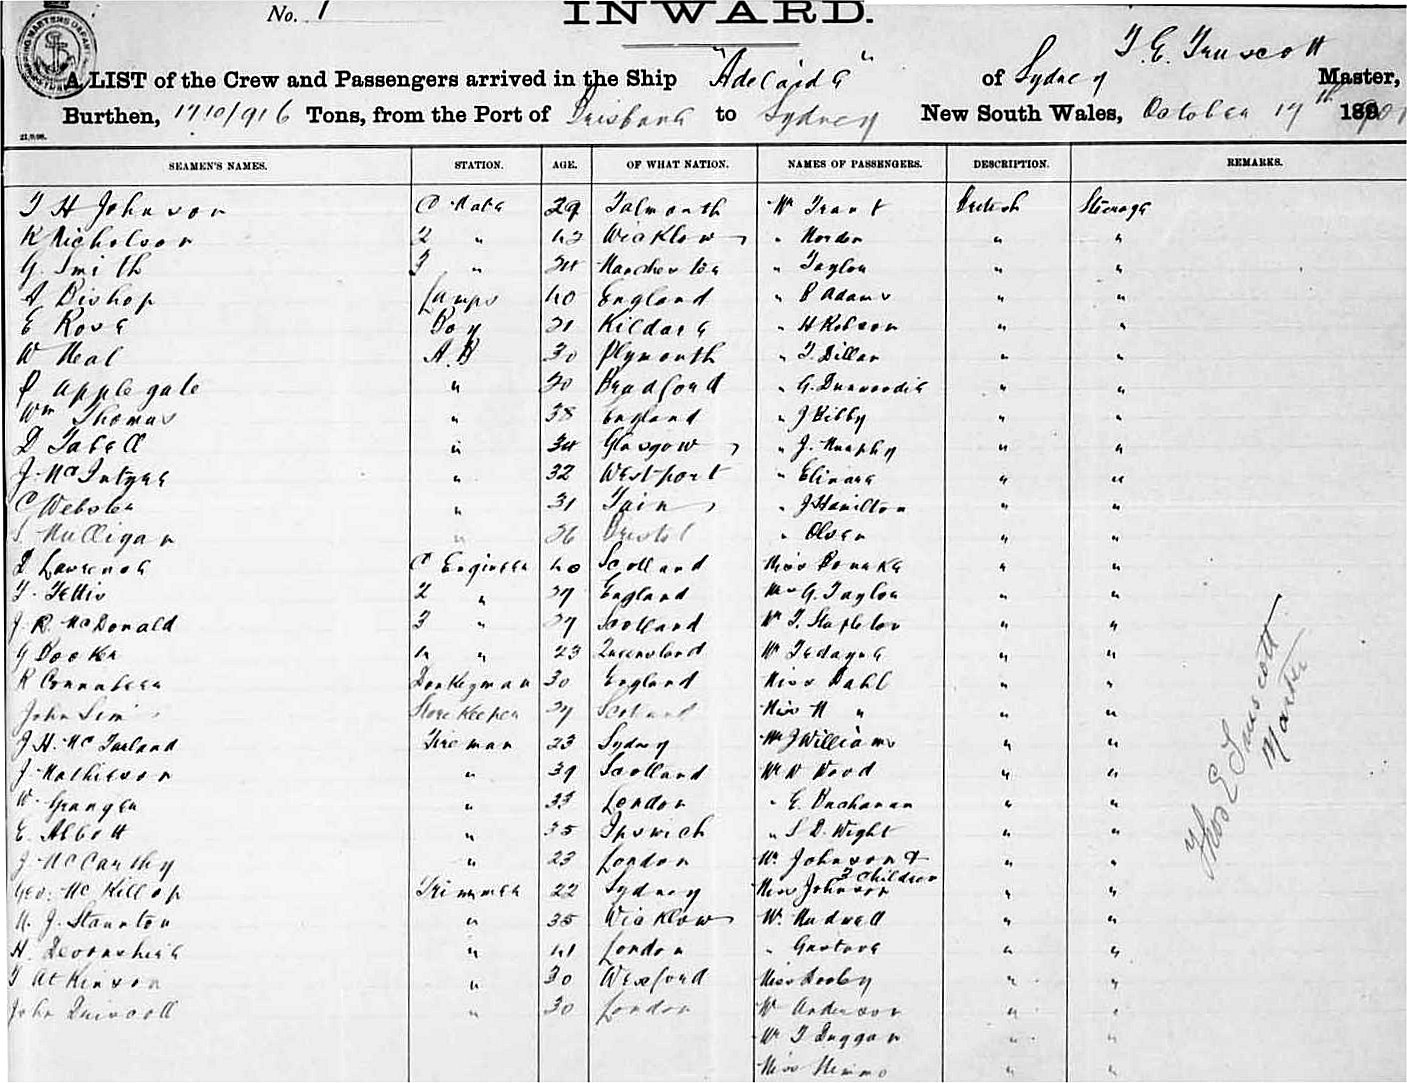 No. 1 INWARD.
T. E. Truscott
A LIST of the Crew and Passengers arrived in the Ship "Adelaide" of Sydney Master,
Burthen, 1710/916 Tons, from the Port of Brisbane to Sydney New South Wales, October 17th 1901
SEAMEN'S NAMES. STATION. AGE. OF WHAT NATION. NAMES OF PASSENGERS. DESCRIPTION. REMARKS.
T H Johnson C Mate 29 Falmouth Mr Grant British Steerage
K Nicholson 2 " 42 Wicklow " Norden " "
G. Smith 3 " 34 Manchester " Taylor " "
A Bishop Lamps 40 England " B Adams " "
E Rose Boy 21 Kildare " H Robson " "
W Neal A.B 30 Plymouth " T. Dillan " "
P Applegate " 30 Bradford " G. Dunwoodie " "
Wm Thomas " 38 England " J Bibby " "
D Fabell " 34 Glasgow " J. Murphy " "
J. McIntyre " 32 Westport " Elinara " "
C Webster " 31 Tain " J Hamilton " "
S. Mulligan " 36 Bristol " Olsen " "
D Lawrence C Engineer 40 Scotland Miss Donake " "
T. Tettis 2 " 37 England Mr G. Taylor " "
J. R. McDonald 3 " 27 Scotland Mr T. Stapleton " "
G Booker 4 " 23 Queensland Mr Tedayne " "
R Connabeer Donkeyman 30 England Miss Dahl " "
John Sim Storekeeper 27 Scotland Miss M " " "
J H. McFarland Fireman 23 Sydney Mr J Williams " "
J. Mathieson " 39 Scotland Mr W Wood " "
W. Granger " 33 London " E. Buchanan " "
E. Abbott " 35 Ipswich " S. D. Wight " "
J. McCarthy " 23 London Mr Johnson & " "
3 Children
Geo. McKillop Trimmer 22 Sydney Mrs Johnson " "
M. J. Staunton " 35 Wicklow Mr Maxwell " "
H. Devonsheir " 41 London " Gustava " "
T Atkinson " 30 Wexford Miss Dooley " "
John Driscoll " 30 London Mr Anderson " "
Mr T Duggan " "
Miss Nimmo " "
Thos E Truscott
Master